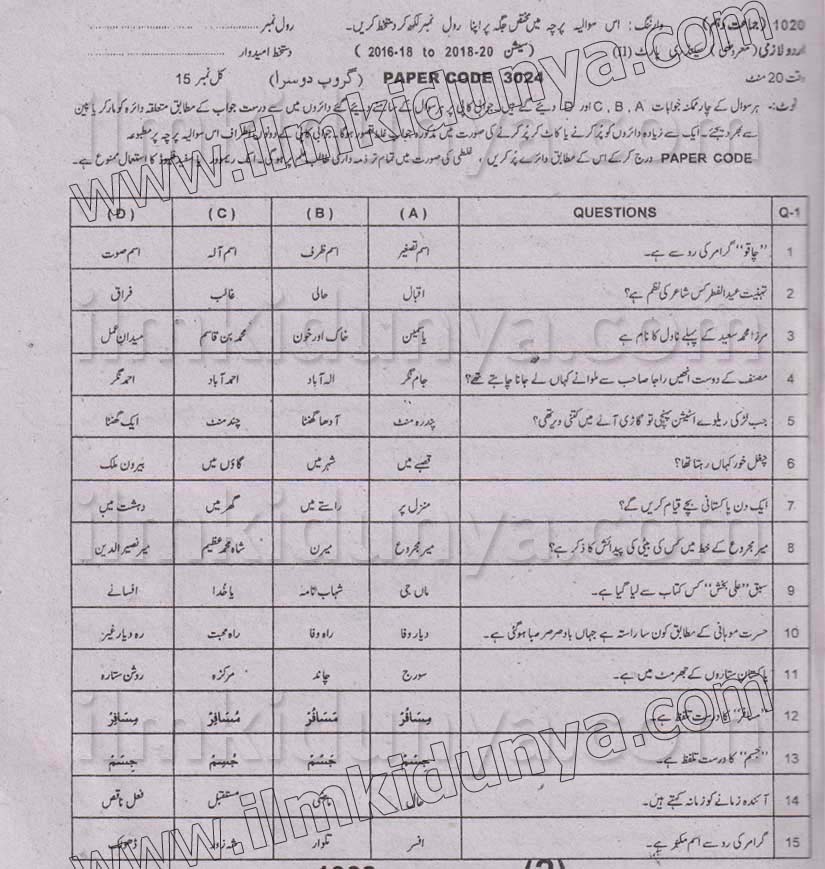 1020 (جماعت دہم) وارننگ: اس سوالیہ پرچہ میں مختص جگہ پر اپنا رول نمبر لکھ کر دستخط کریں۔ رول نمبر
اردو لازمی (معروضی) سیکنڈری پارٹ (II) (سیشن 2016-18 to 2018-20) دستخط امیدوار
وقت 20 منٹ PAPER CODE 3024 (گروپ دوسرا) کل نمبر 15
نوٹ:- ہر سوال کے چار ممکنہ جوابات A، B، C اور D دیئے گئے ہیں۔ جوابی کاپی پر ہر سوال کے سامنے دیئے گئے دائروں میں سے درست جواب کے مطابق متعلقہ دائرہ کو مارکر یا پین
سے بھر دیجئے۔ ایک سے زیادہ دائروں کو پُر کرنے یا کاٹ کر پُر کرنے کی صورت میں مذکورہ جواب غلط تصور ہوگا۔ جوابی کاپی کے دونوں اطراف اس سوالیہ پرچہ پر مطبوعہ
PAPER CODE درج کر کے اس کے مطابق دائرے پُر کریں، غلطی کی صورت میں تمام تر ذمہ داری طالب علم پر ہوگی۔ استعمال ممنوع ہے۔
Q-1 QUESTIONS (A) (B) (C) (D)
1 "چاقو" گرامر کی رو سے ہے۔ اسم تصغیر اسم ظرف اسم آلہ اسم صوت
2 تہنیت عید الفطر کس شاعر کی نظم ہے؟ اقبال حالی غالب فراق
3 مرزا محمد سعید کے پہلے ناول کا نام ہے یاسمین خاک اور خون محمد بن قاسم میدان عمل
4 مصنف کے دوست انھیں راجا صاحب سے ملوانے کہاں لے جانا چاہتے تھے؟ جام نگر الہ آباد احمد آباد احمد نگر
5 جب لڑکی ریلوے اسٹیشن پہنچی تو گاڑی آنے میں کتنی دیر تھی؟ پندرہ منٹ آدھا گھنٹا چند منٹ ایک گھنٹا
6 چغل خور کہاں رہتا تھا؟ قصبے میں شہر میں گاؤں میں بیرون ملک
7 ایک دن پاکستانی بچے قیام کریں گے؟ منزل پر راستے میں گھر میں دہشت میں
8 میر مجروح کے خط میں کس کی بیٹی کی پیدائش کا ذکر ہے؟ میر مجروع میرن شاہ محمد عظیم میر نصیر الدین
9 سبق "علی بخش" کس کتاب سے لیا گیا ہے۔ ماں جی شہاب نامہ یا خُدا افسانے
10 حسرت موہانی کے مطابق کون سا راستہ ہے جہاں باد صرصر صبا ہو گئی ہے۔ دیار وفا راہ وفا راہ محبت رہ دیار غیر
11 پاکستان ستاروں کے جھرمٹ میں ہے۔ سورج چاند مرکزہ روشن ستارہ
12 "مسافر" کا درست تلفظ ہے۔ مِسَافُرْ مَسَافُرْ مُسَافِرْ مِسَافِرْ
13 "جسم" کا درست تلفظ ہے۔ جَسَمْ جَسْمْ جُسِمْ جِسْمْ
14 آئندہ زمانے کو زمانہ کہتے ہیں۔ حال ماضی مستقبل فعل ناقص
15 گرامر کی رو سے اسم مکبر ہے۔ افسر تلوار شہ زور ڈھولک
www.ilmkidunya.com